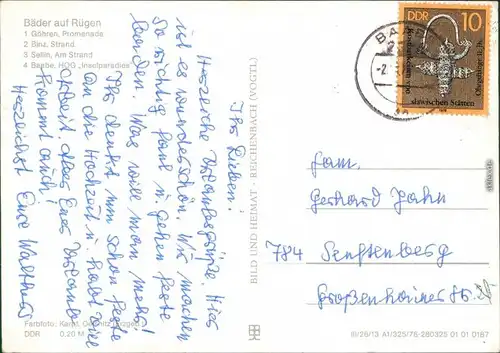 Bäder auf Rügen
1 Göhren, Promenade
2 Binz, Strand
3 Sellin, Am Strand
4 Baabe, HOG „Inselparadies"
Ihr Lieben!
Herzliche Urlaubsgrüße. Hier
ist es wunderschön. Wir machen
so richtig faul u. gehen feste
baden. Was will man mehr!
Ihr denkt nun schon feste
an die Hochzeit u. habt viel
Arbeit aber Euer Urlaub
kommt auch!
Herzlichst Eure
BILD UND HEIMAT · REICHENBACH (VOGTL)
DDR 10
slawischen Stätten
Fam.
Gerhard Jahn
784 Senftenberg
Großenhainer Str.
Farbfoto:
DDR 0,20 M
III/26/13 A1/325/78 280325 01 01 0187